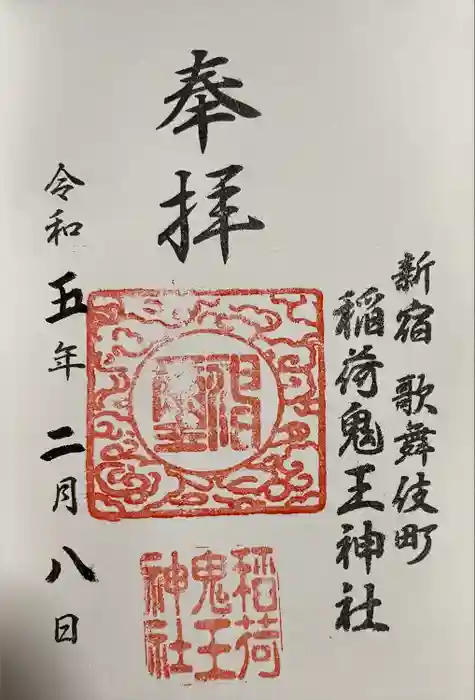 新宿 歌舞伎町
稲荷鬼王神社
奉拝
稲荷
鬼王
神社
令和五年二月八日